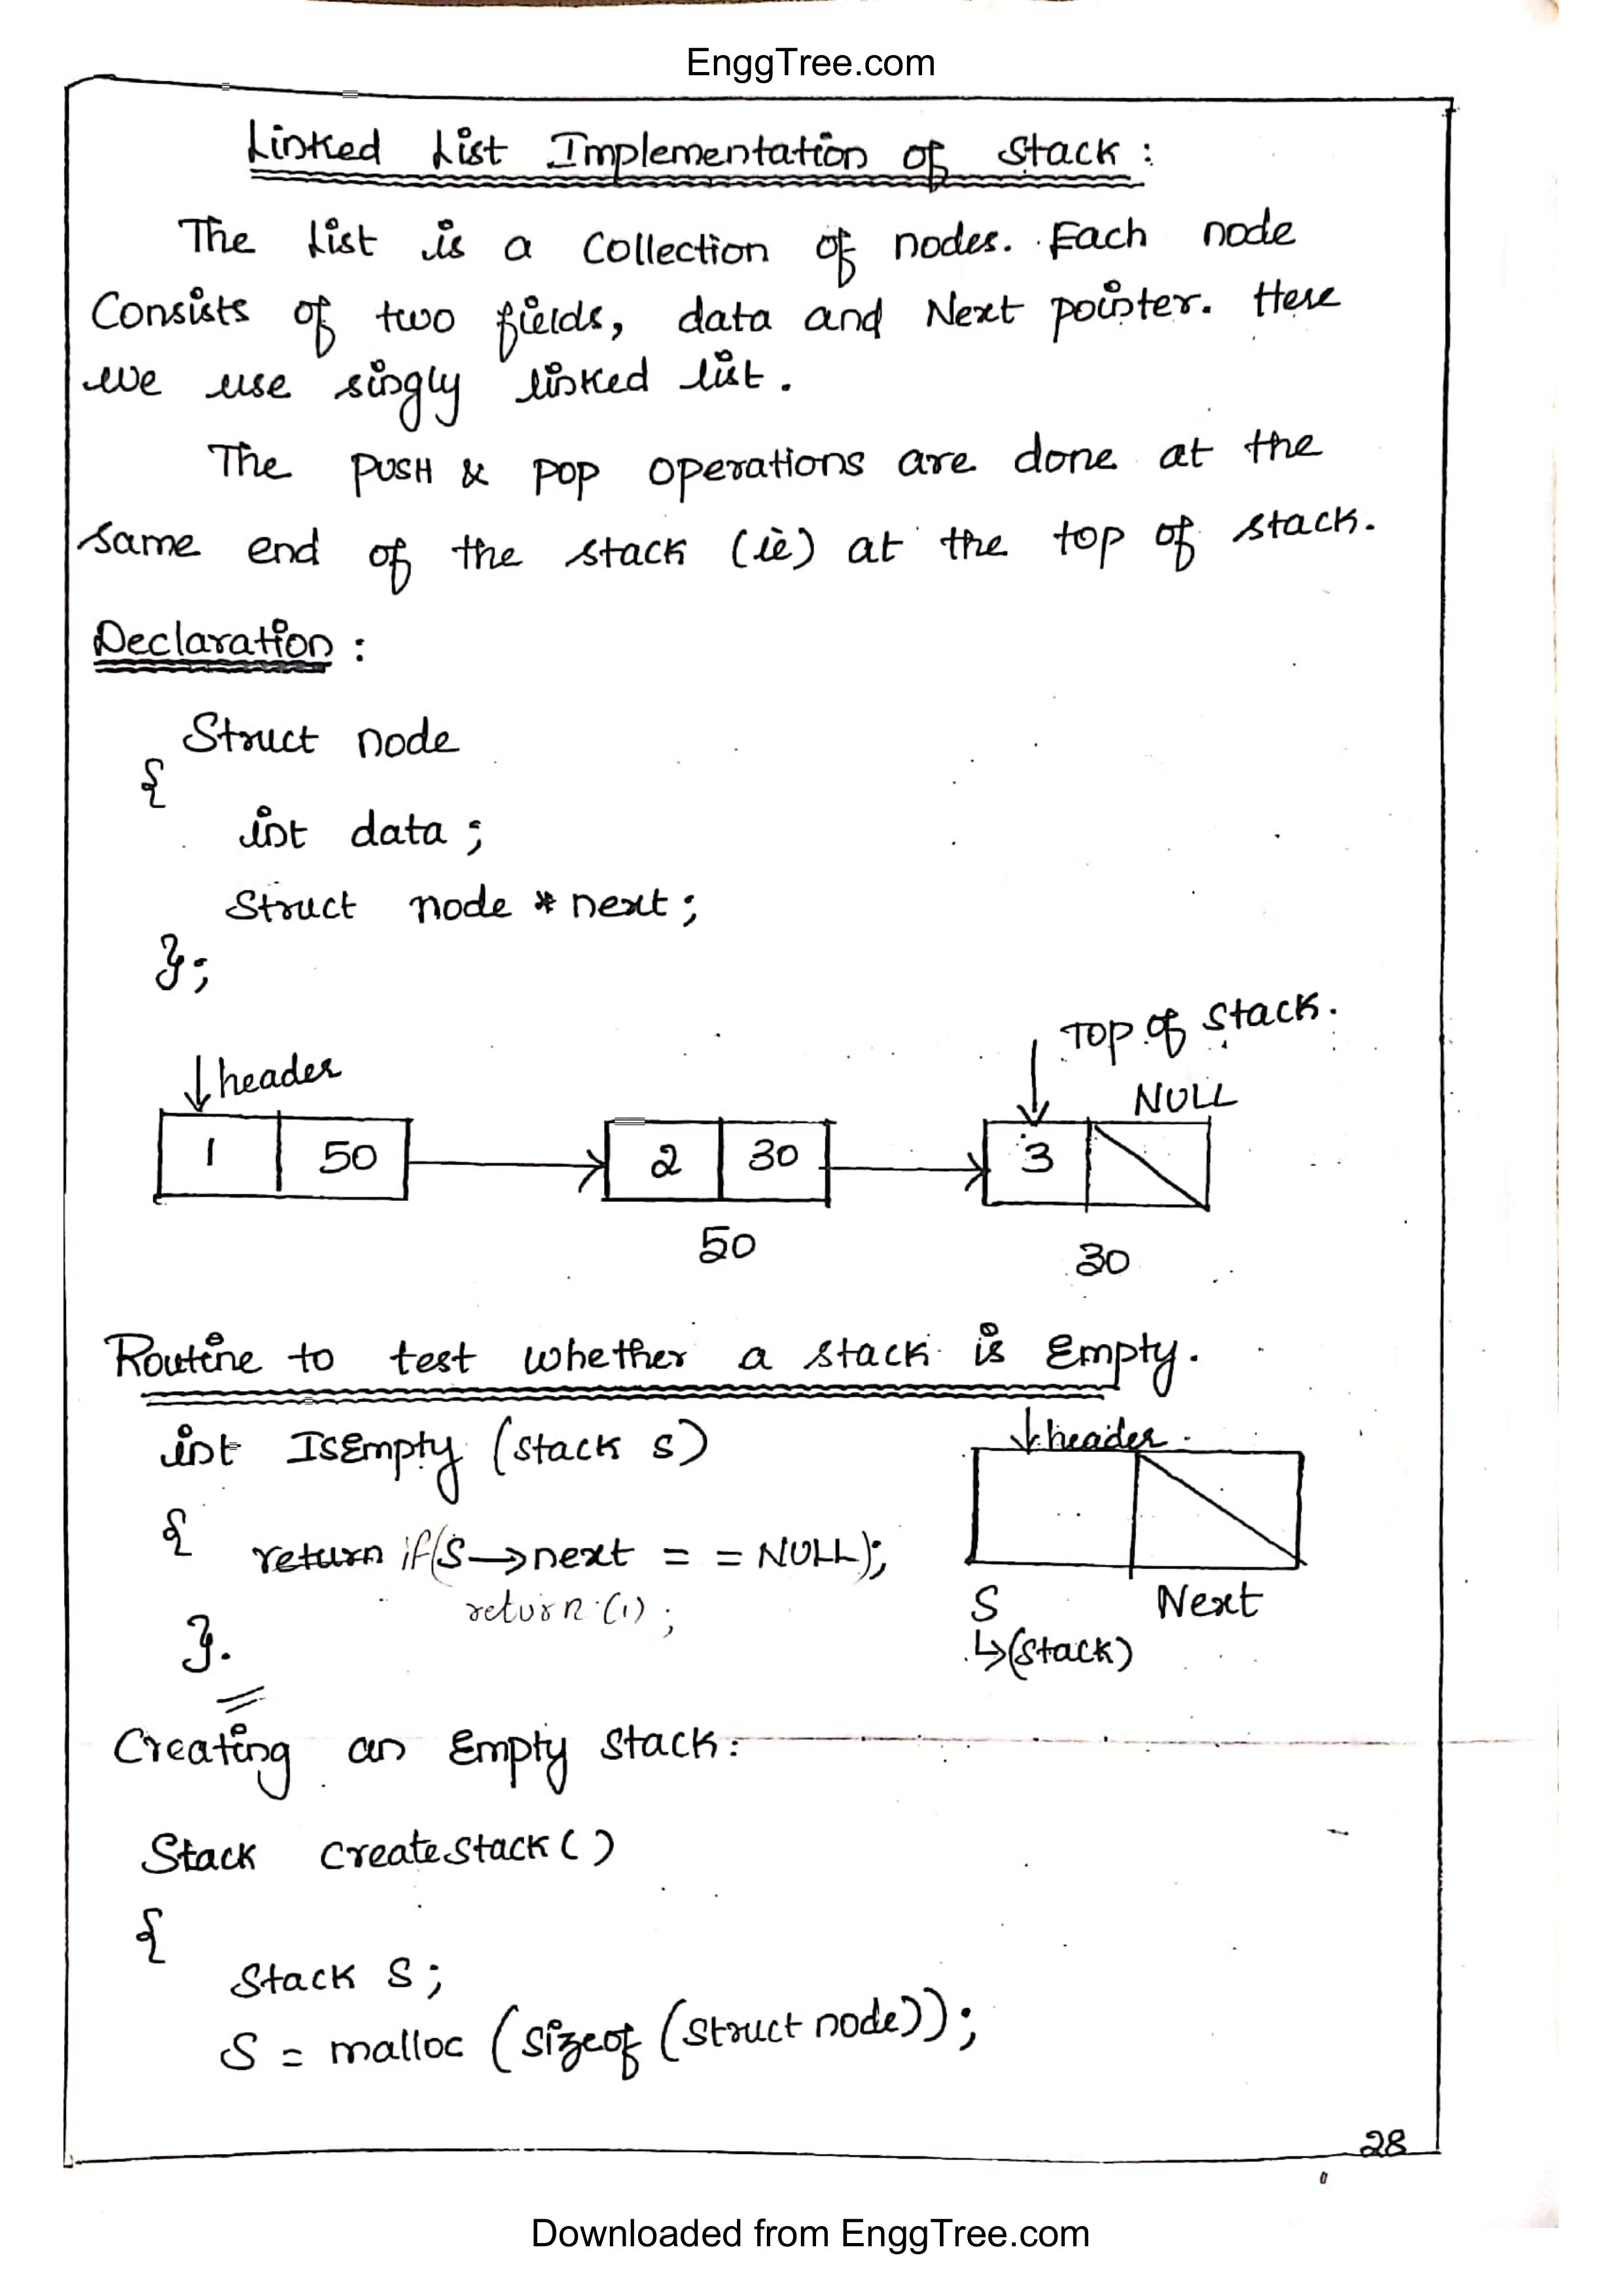 EnggTree.com
Linked List Implementation of Stack :
The List is a Collection of nodes. Each node
Consists of two fields, data and Next pointer. Here
we use singly linked list.
The PUSH & POP Operations are done at the
same end of the stack (ie) at the top of stack.
Declaration :
Struct node
{
int data ;
Struct node * next ;
};
↓ header
Top of Stack.
NULL
1 50 → 2 30 → 3
50 30
Routine to test whether a stack is Empty.
int IsEmpty (stack s)
↓ header
{ return if(S→next = = NULL);
return (1) ;
S Next
}.
↳(Stack)
Creating an Empty Stack:
Stack CreateStack ( )
{
Stack S ;
S = malloc (sizeof (Struct node)) ;
28
Downloaded from EnggTree.com